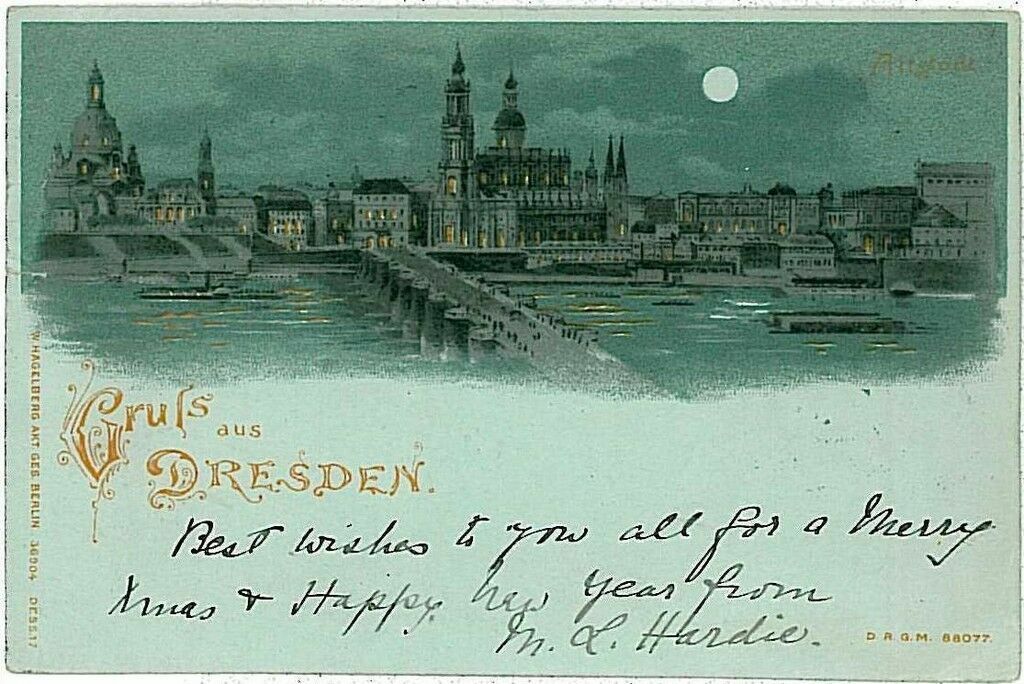 Altstadt
Gruſs
aus
DRESDEN.
Best wishes to you all for a Merry
Xmas & Happy New Year from
M. L. Hardie.
D. R. G. M. 88077.
W. HAGELBERG AKT. GES. BERLIN 36904 DESS.17